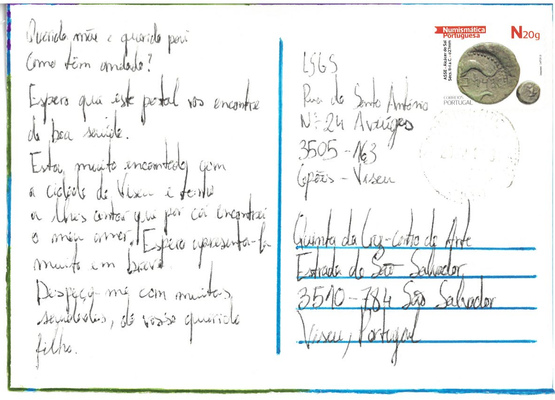 Querida mãe e querido pai
Como têm andado?
Espero que este postal vos encontre
de boa saúde.
Estou muito encantado com
a cidade de Viseu e tenho
a lhes contar que por cá encontrei
o meu amor. Espero apresentá-la
muito em breve.
Despeço-me com muitas
saudades, do vosso querido
filho.
Numismática
Portuguesa
N20g
CORREIOS
PORTUGAL
Rua de Santo António
Nº 24 Aveúges
3505 - 163
Cepões - Viseu
Quinta da Cruz - Centro de Arte
Estrada de São Salvador,
3510 - 784 São Salvador
Viseu, Portugal